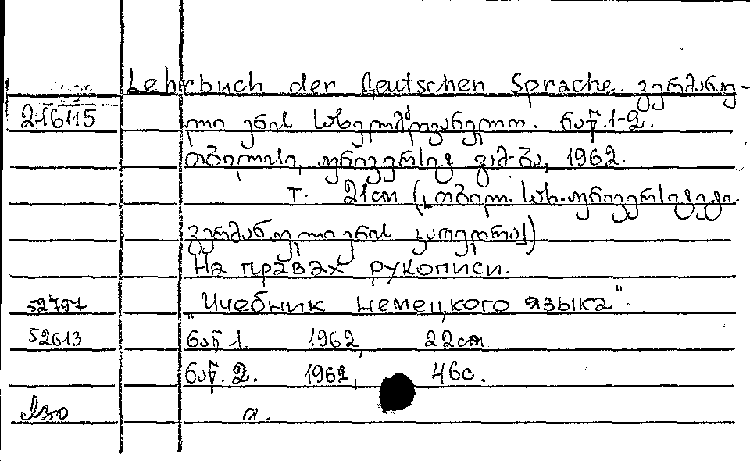 Lehrbuch der Deutschen Sprache. გერმანუ-
216115 ლი ენის სახელმძღვანელო. ნაწ. 1-2.
თბილისი, უნივერსიტ. გამ-ბა, 1962.
т. 21см (თბილ. სახ. უნივერსიტეტი.
გერმანული ენის კათედრა)
На правах рукописи.
52797 "Учебник немецкого языка".
52613 ნაწ 1. 1962, 22см
ნაწ. 2. 1962, 46с.